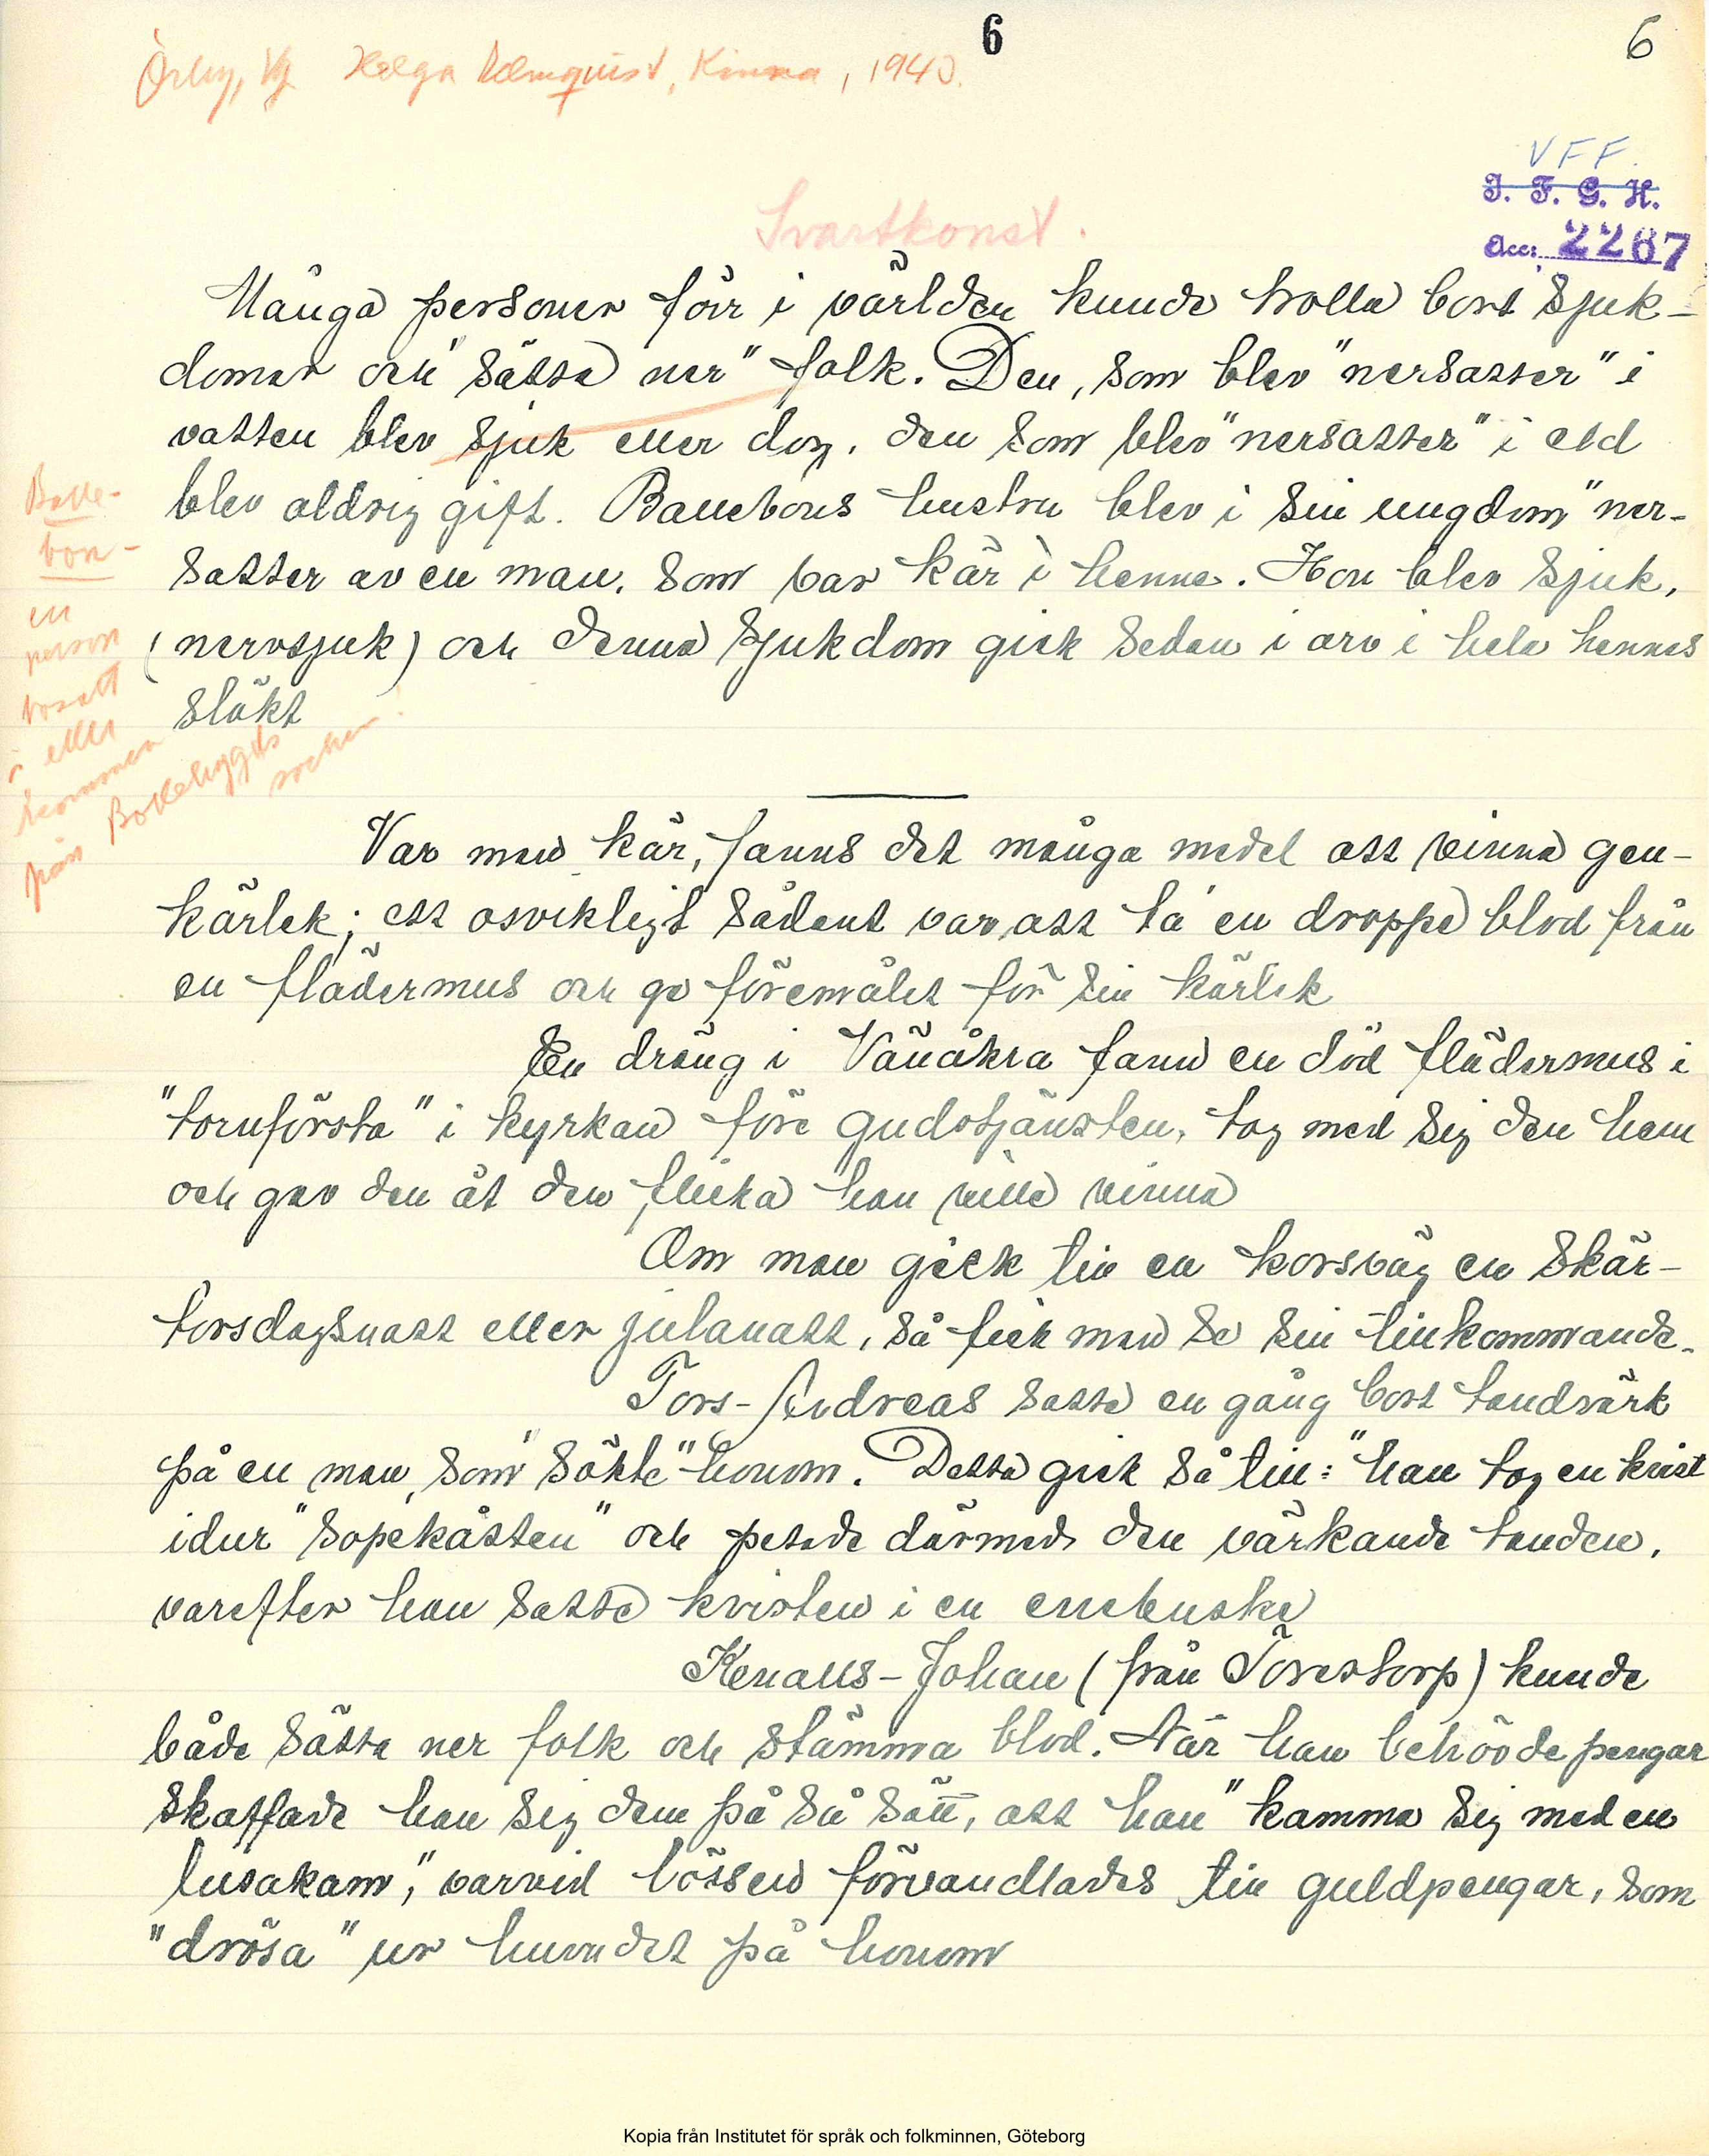 6
6
Örby, Vg Helga Holmquist, Kinna, 1940.
VFF.
I. F. G. H.
Acc: 2267
Svartkonst.
Många personer förr i världen kunde trolla bort sjuk-
domar och "sätta ner" folk. Den, som blev "nersatter" i
vatten blev sjuk eller dog, den som blev "nersatter" i eld
blev aldrig gift. Bollebons hustru blev i sin ungdom "ner-
satter av en man, som var kär i henne. Hon blev sjuk,
(nervsjuk) och denna sjukdom gick sedan i arv i hela hennes
släkt
Bolle-
bon -
en
person
bosatt
i eller
kommen
från Bollebygds
socken.
Var man kär, fanns det många medel att vinna gen-
kärlek; ett osvikligt sådant var att ta en droppe blod från
en flädermus och ge föremålet för sin kärlek
En dräng i Vänåkra fann en död flädermus i
"tornförsta" i kyrkan före gudstjänsten, tog med sig den hem
och gav den åt den flicka han ville vinna
Om man gick till en korsväg en skär-
torsdagsnatt eller julanatt, så fick man se sin tillkommande.
Tors-Andreas satte en gång bort tandvärk
på en man, som "sökte" honom. Detta gick så till: "han tog en kvist
idur "sopekåsten" och petade därmed den värkande tanden,
varefter han satte kvisten i en enebuske
Kenalls-Johan (från Töverstorp) kunde
både sätta ner folk och stämma blod. När han behövde pengar
skaffade han sig dem på så sätt, att han "kamma sig med en
lusakam", varvid lössen förvandlades till guldpengar, som
"drösa" ur huvudet på honom
Kopia från Institutet för språk och folkminnen, Göteborg